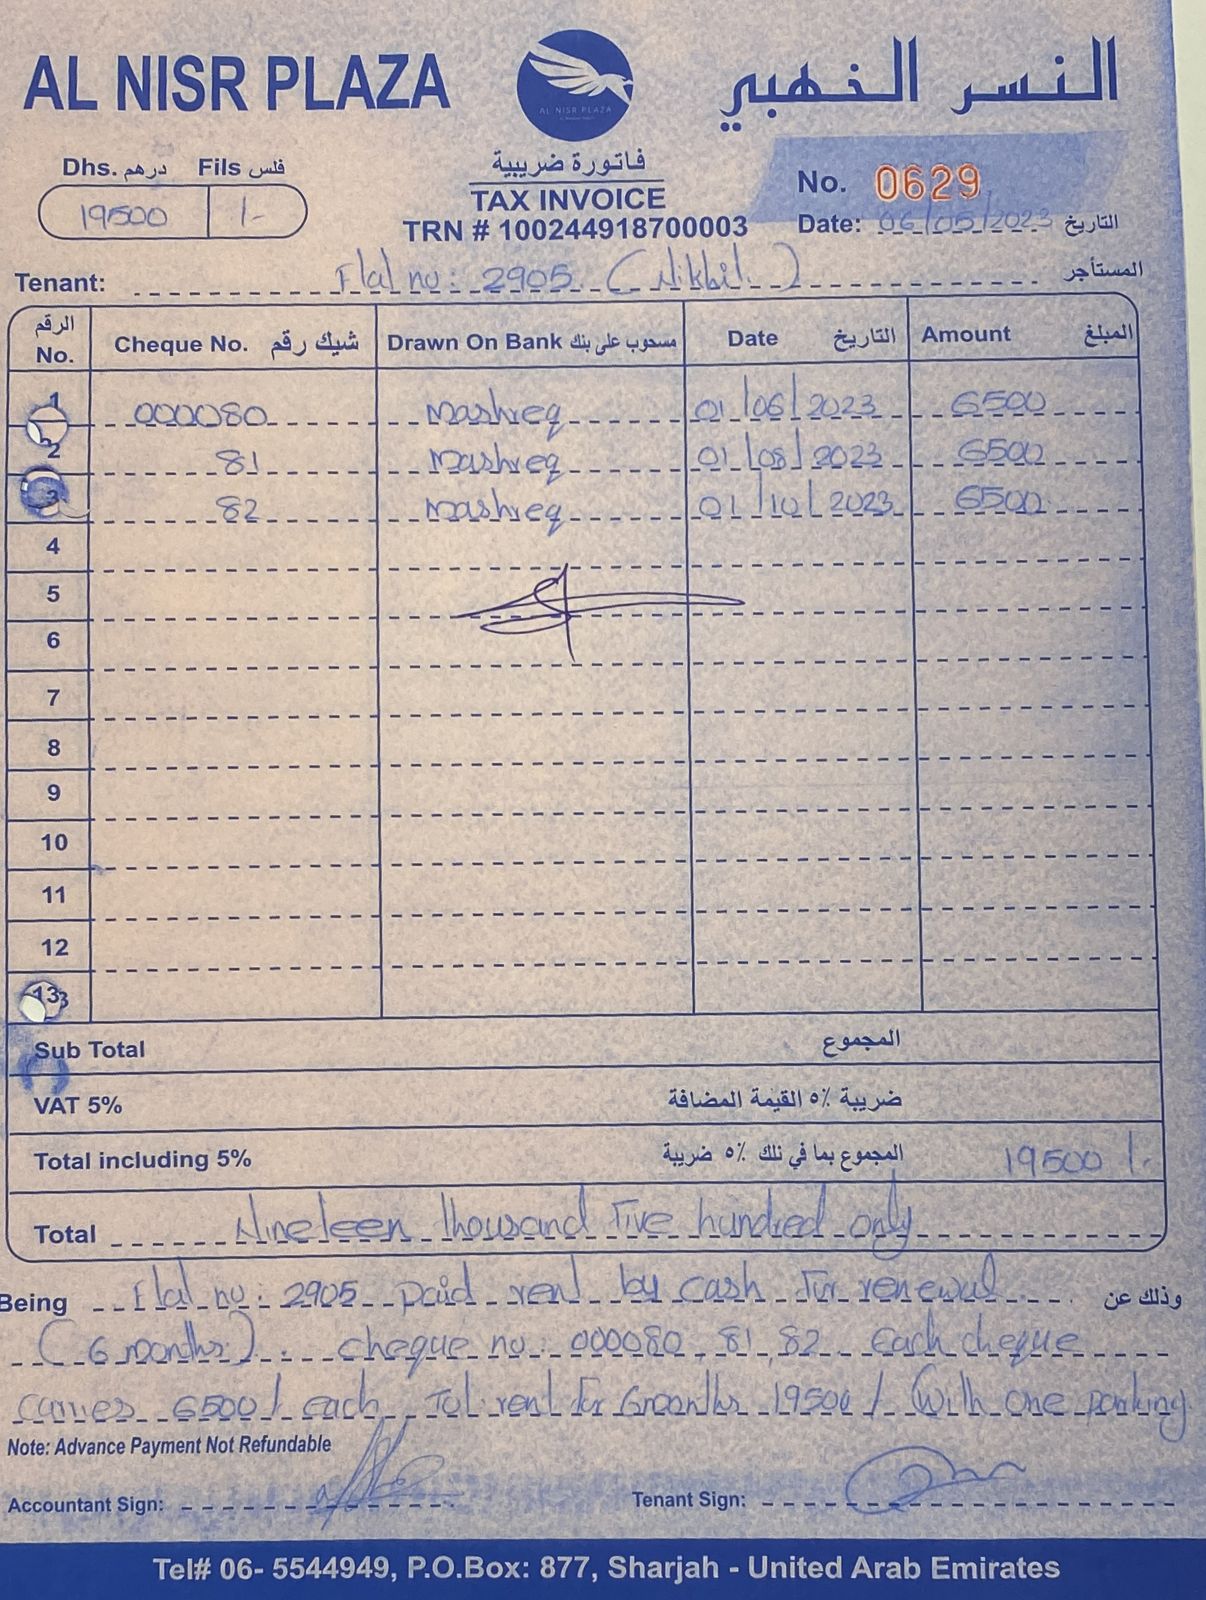 AL NISR PLAZA
AL NISR PLAZA
النسر الذهبي
Dhs. درهم Fils فلس
19500 /-
فاتورة ضريبية
TAX INVOICE
TRN # 100244918700003
No. 0629
Date: 06/05/2023 التاريخ
Tenant: Flat no: 2905 (Nikhil) المستأجر
الرقم No. Cheque No. شيك رقم Drawn On Bank مسحوب على بنك Date التاريخ Amount المبلغ
1 000080 Mashreq 01/06/2023 6500
2 81 Mashreq 01/08/2023 6500
3 82 Mashreq 01/10/2023 6500
4
5
6
7
8
9
10
11
12
13
Sub Total المجموع
VAT 5% ضريبة ٥٪ القيمة المضافة
Total including 5% المجموع بما في تلك ٥٪ ضريبة 19500 /-
Total Nineteen thousand Five hundred only
Being Flat no: 2905 paid rent by cash for renewal وذلك عن
(6 months). cheque no: 000080, 81, 82 Each cheque
carries 6500/ each. Tot rent for 6 months 19500/ (With one parking
Note: Advance Payment Not Refundable
Accountant Sign: Tenant Sign:
Tel# 06- 5544949, P.O.Box: 877, Sharjah - United Arab Emirates